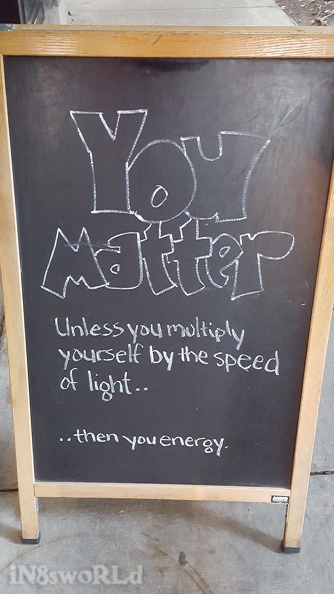 You
Matter
Unless you multiply
yourself by the speed
of light..
..then you energy.
iN8swoRLd